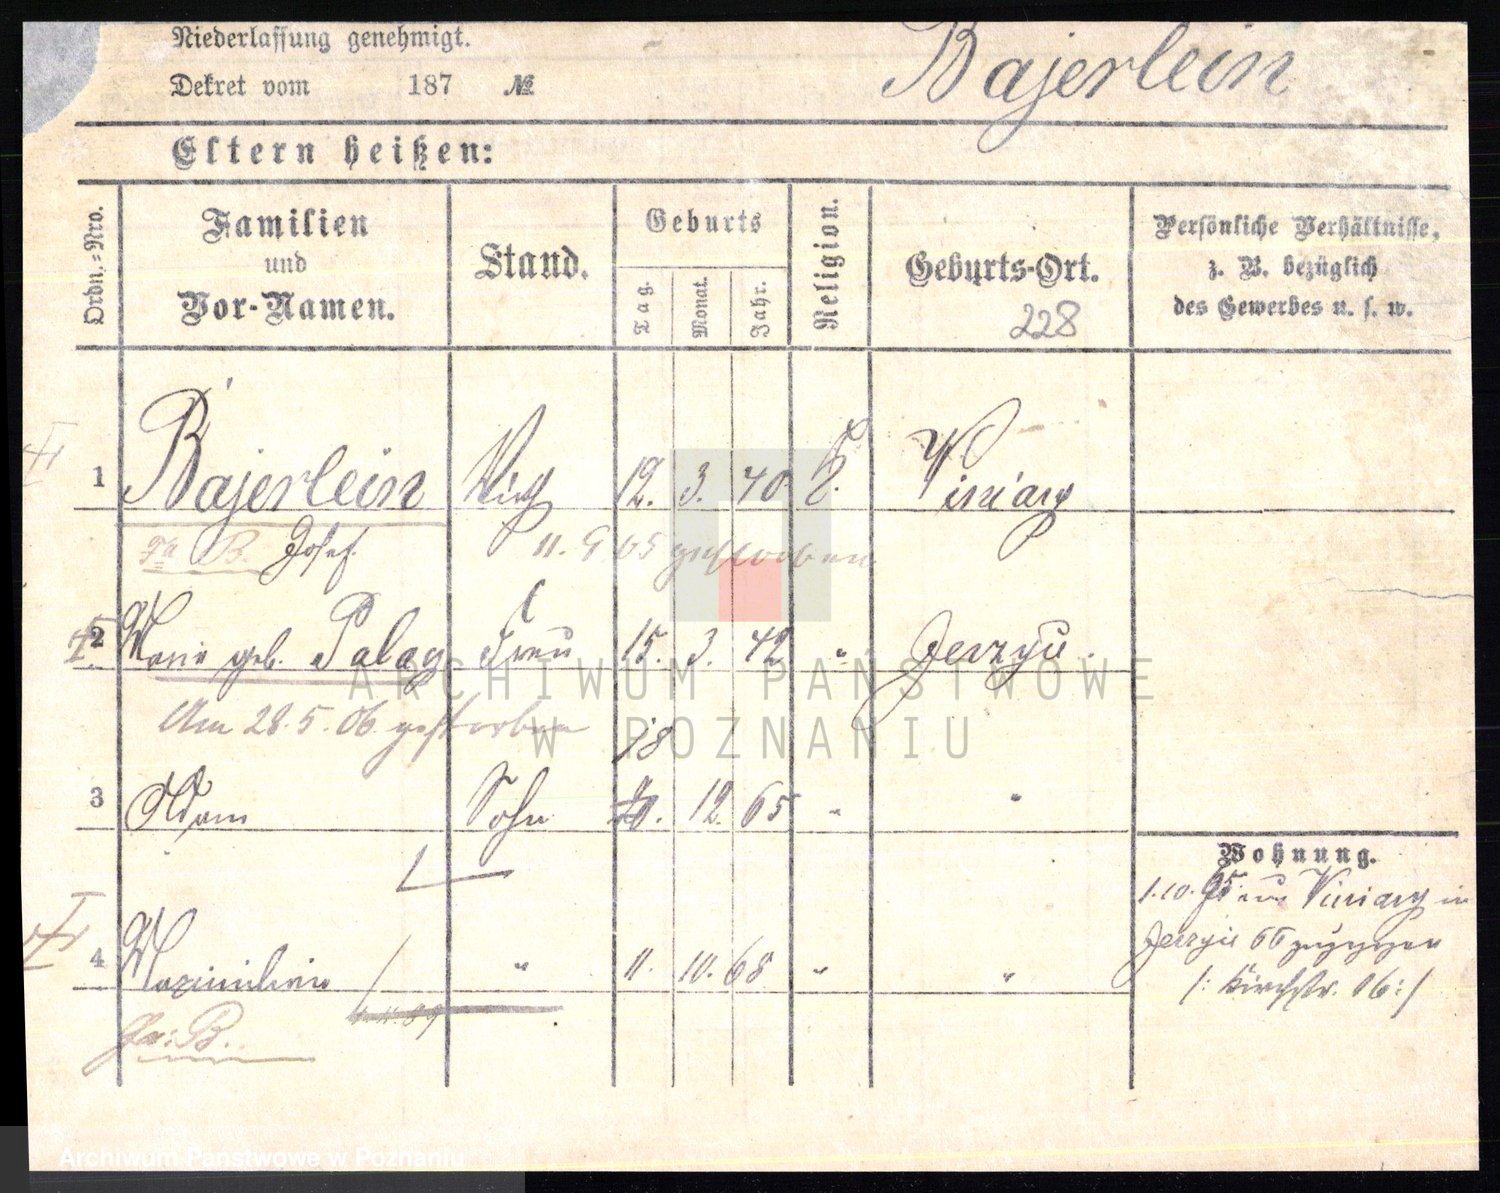 Niederlassung genehmigt.
Dekret vom 187 №
Bajerlein
Eltern heißen:
Ordn.=Nro.
Familien und Vor-Namen.
Stand.
Geburts
Tag. Monat. Jahr.
Religion.
Geburts-Ort.
228
Persönliche Verhältnisse,
z. B. bezüglich
des Gewerbes u. s. w.
1 Bajerlein Wirth 12. 3. 40. Winiary
B. Josef 11. 9 05 gestorben
2 Marie geb. Palacz Frau 15. 3. 42 " Jerzyce.
Am 28.5.06 gestorben
18
3 Adam Sohn 12 65 " "
4 Maximilian " 11. 10. 68 " "
89
B.
Wohnung.
1.10. 95 aus Winiary in
Jerzyce 66 zugezogen
/: Kirchstr. 16 :/
ARCHIWUM PAŃSTWOWE
W POZNANIU
Archiwum Państwowe w Poznaniu